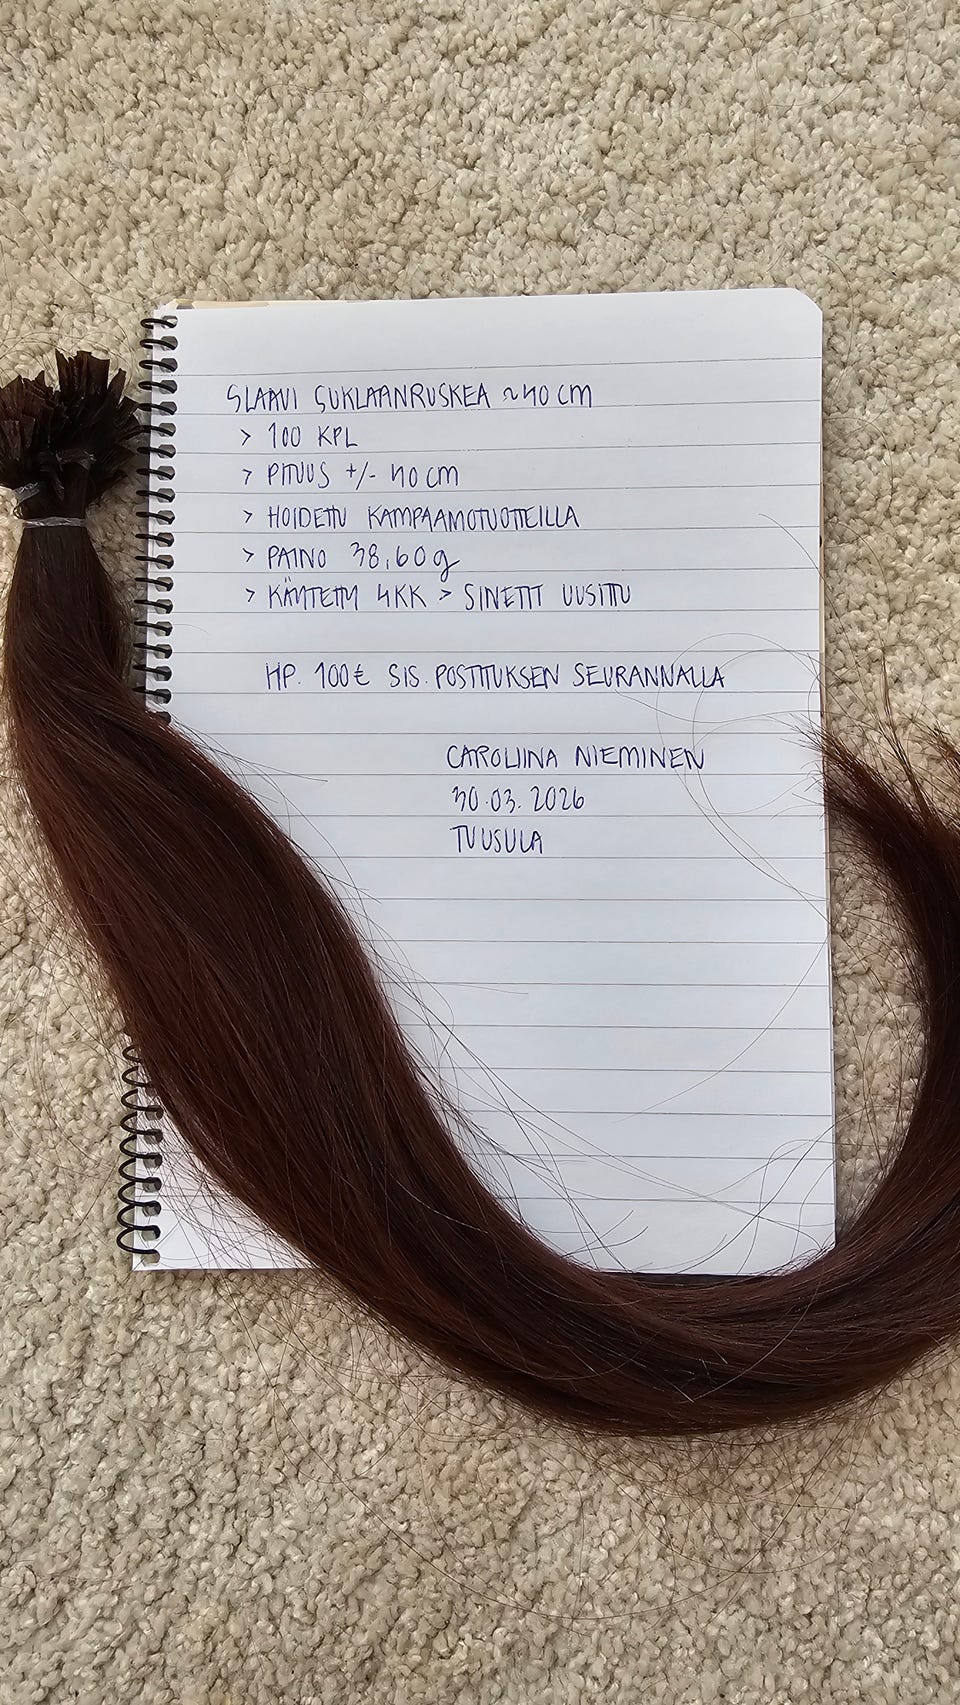 SLAAVI SUKLAANRUSKEA ~40 cm
> 100 KPL
> PITUUS +/- 40 cm
> HOIDETTU KAMPAAMOTUOTTEILLA
> PAINO 38,60g
> KÄYTETTY 4KK > SINETIT UUSITTU
HP. 100€ SIS. POSTITUKSEN SEURANNALLA
CAROLIINA NIEMINEN
30.03.2026
TUUSULA